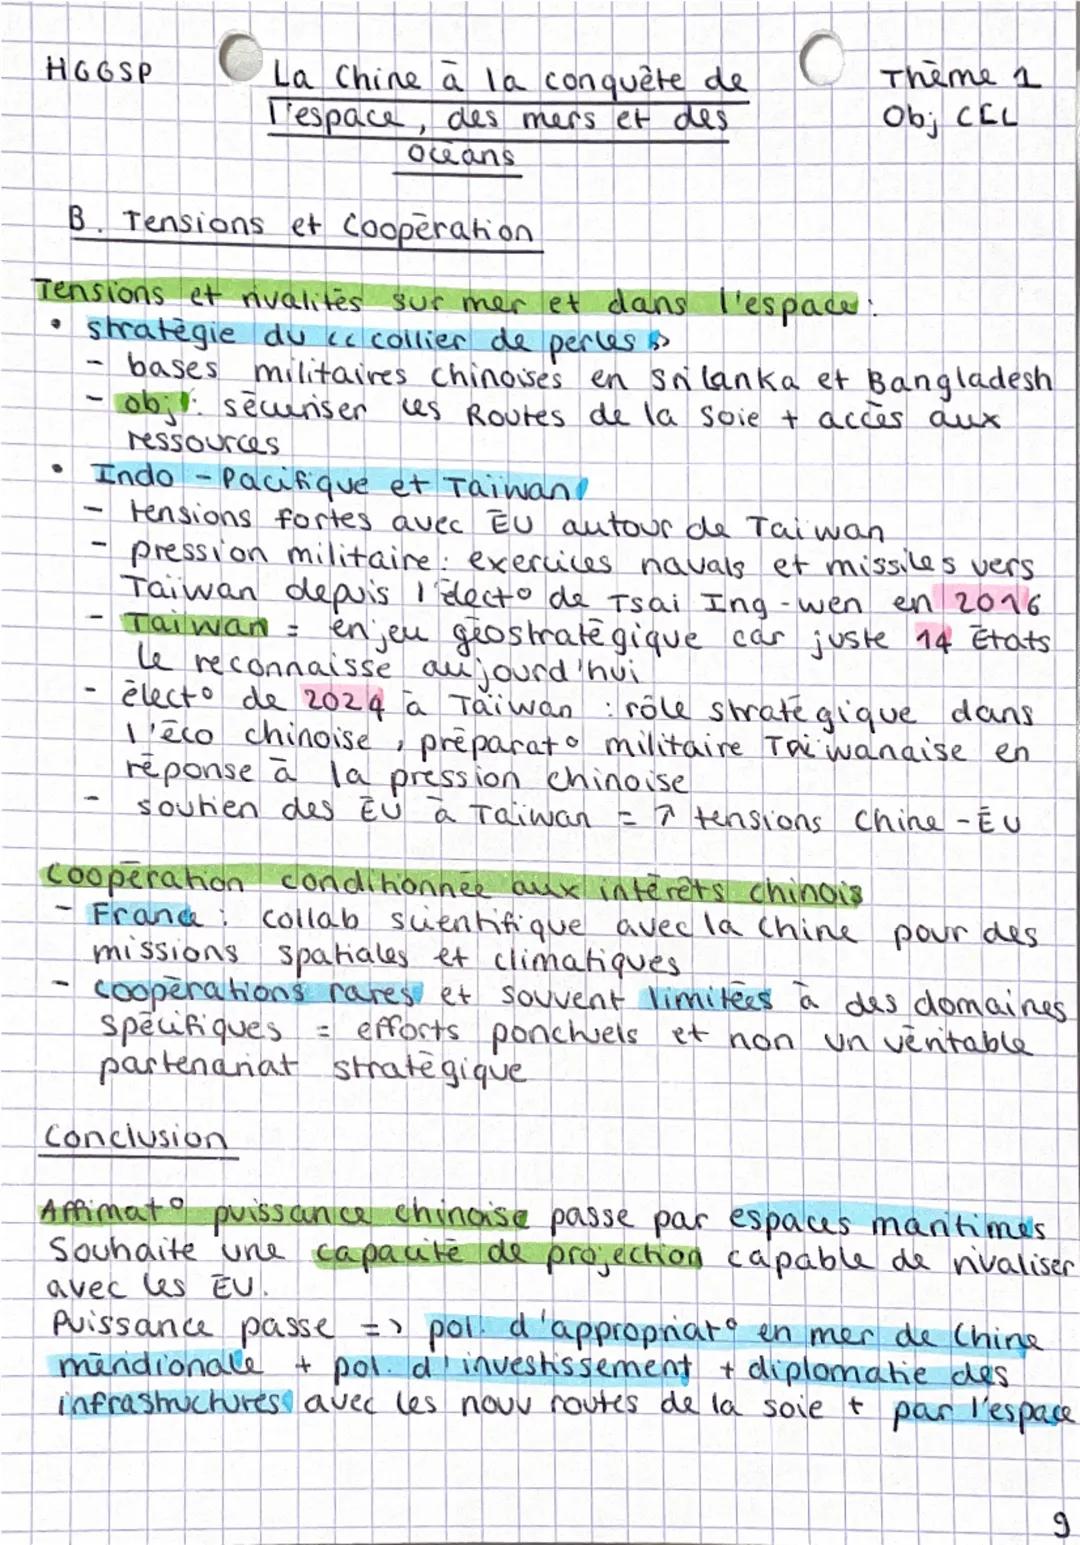 HGGSP
La Chine à la conquête de
l'espace, des mers et des
océans
Thème 1
Obj CCL
B. Tensions et Coopération
Tensions et rivalités sur mer et dans l'espace :
• stratégie du << collier de perles >>
- bases militaires chinoises en Sri lanka et Bangladesh
- obj : sécuriser les Routes de la soie + accès aux
ressources
• Indo - Pacifique et Taiwan
- tensions fortes avec ÉU autour de Taiwan
- pression militaire : exercices navals et missiles vers
Taïwan depuis l'électo de Tsai Ing-wen en 2016
- Taiwan = enjeu géostratégique car juste 14 États
le reconnaisse aujourd'hui
- électo de 2024 à Taïwan : rôle stratégique dans
l'éco chinoise, préparato militaire Taïwanaise en
réponse à la pression chinoise
- soutien des ÉU à Taïwan = ↗ tensions Chine - ÉU
Coopération conditionnée aux intérêts chinois
- France : collab scientifique avec la Chine pour des
missions spatiales et climatiques
- coopérations rares et souvent limitées à des domaines
spécifiques = efforts ponctuels et non un véritable
partenariat stratégique
Conclusion
Affimato puissance chinoise passe par espaces maritimes
Souhaite une capacité de projection capable de rivaliser
avec les ÉU.
Puissance passe => pol. d'appropriato en mer de Chine
méridionale + pol. d'investissement + diplomatie des
infrastructures avec les nouv routes de la soie + par l'espace
9